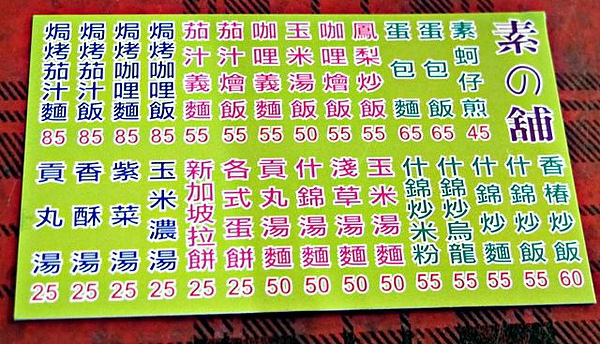 素の舖
素蚵仔煎 45
蛋包飯 65
蛋包麵 65
鳳梨炒飯 55
咖哩燴飯 55
玉米湯飯 50
咖哩義麵 55
茄汁燴飯 55
茄汁義麵 55
焗烤咖哩飯 85
焗烤咖哩麵 85
焗烤茄汁飯 85
焗烤茄汁麵 85
香椿炒飯 60
什錦炒飯 55
什錦炒麵 55
什錦炒烏龍 55
什錦炒米粉 55
玉米湯麵 50
淺草湯麵 50
什錦湯麵 50
貢丸湯麵 50
各式蛋餅 25
新加坡拉餅 25
玉米濃湯 25
紫菜湯 25
香酥湯 25
貢丸湯 25